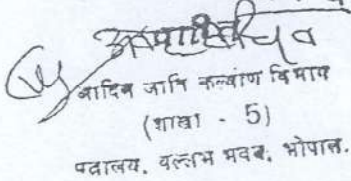 आदिम जाति कल्याण विभाग
(शाखा - 5)
मंत्रालय, वल्लभ भवन, भोपाल.